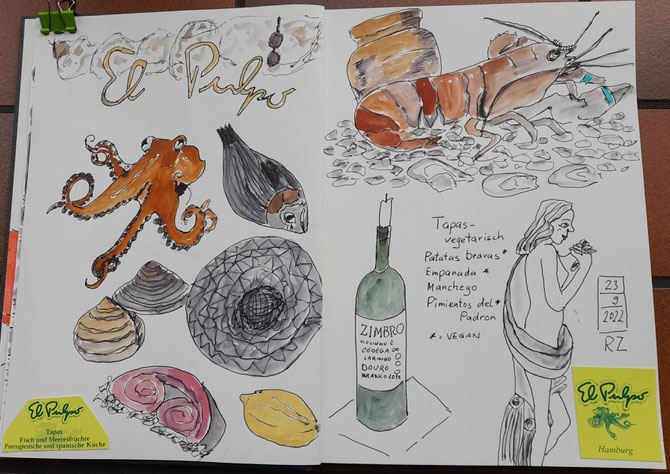 El Pulpo
El Pulpo
Tapas
Fisch und Meeresfrüchte
Portugiesische und spanische Küche
Tapas-
vegetarisch
Patatas bravas*
Empanada *
Manchego
Pimientos del*
Padron
* = VEGAN
ZIMBRO
CODEGA DO
LARINHO
DOURO
BRANCO
23
9
2022
RZ
El Pulpo
Hamburg